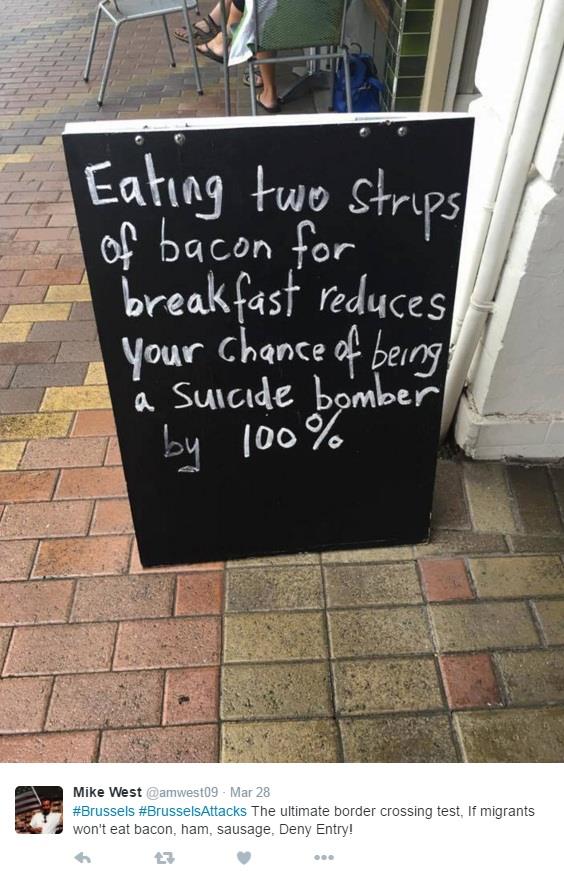 Eating two strips
of bacon for
breakfast reduces
your chance of being
a suicide bomber
by 100%
Mike West @amwest09 · Mar 28
#Brussels #BrusselsAttacks The ultimate border crossing test, If migrants
won't eat bacon, ham, sausage, Deny Entry!